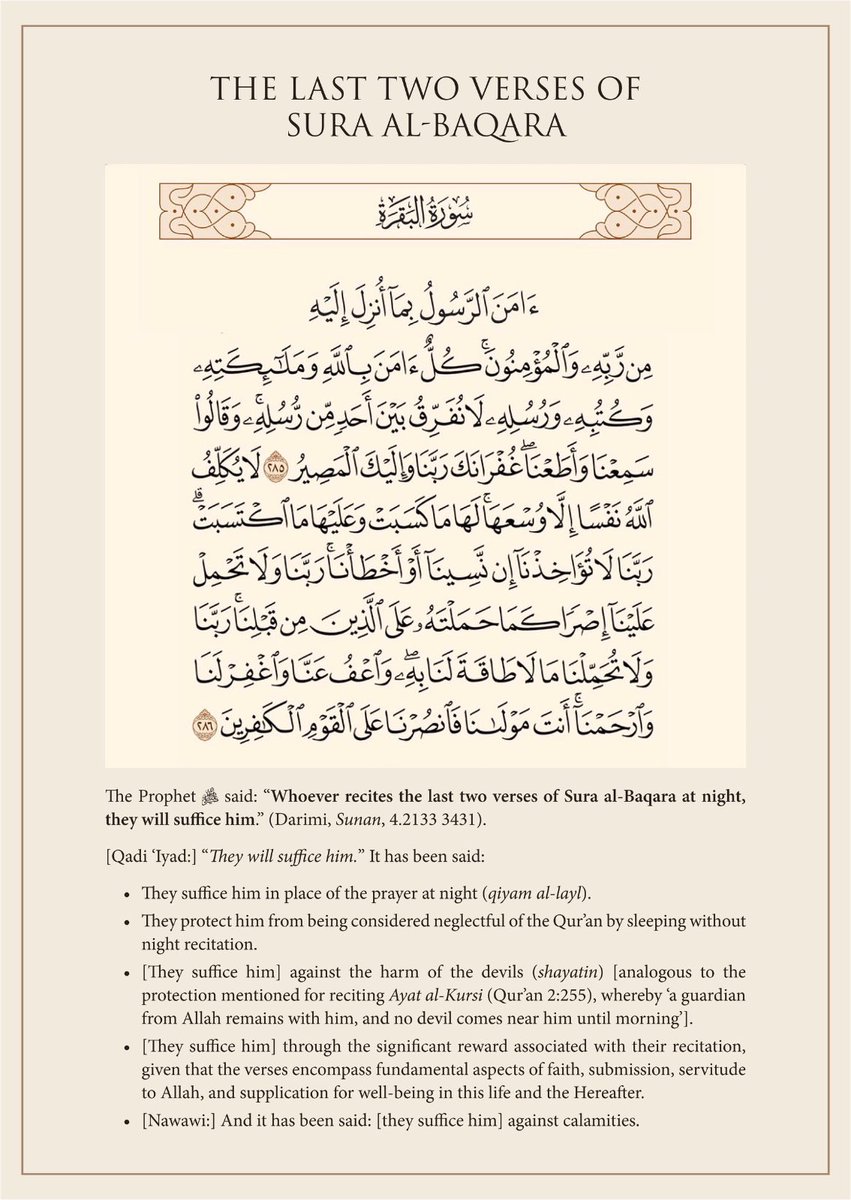 THE LAST TWO VERSES OF
SURA AL-BAQARA
سُورَةُ البَقَرَةِ
ءَامَنَ ٱلرَّسُولُ بِمَآ أُنزِلَ إِلَيْهِ
مِن رَّبِّهِۦ وَٱلْمُؤْمِنُونَۚ كُلٌّ ءَامَنَ بِٱللَّهِ وَمَلَٰٓئِكَتِهِۦ
وَكُتُبِهِۦ وَرُسُلِهِۦ لَا نُفَرِّقُ بَيْنَ أَحَدٍ مِّن رُّسُلِهِۦۚ وَقَالُوا۟
سَمِعْنَا وَأَطَعْنَاۖ غُفْرَانَكَ رَبَّنَا وَإِلَيْكَ ٱلْمَصِيرُ ٢٨٥ لَا يُكَلِّفُ
ٱللَّهُ نَفْسًا إِلَّا وُسْعَهَاۚ لَهَا مَا كَسَبَتْ وَعَلَيْهَا مَا ٱكْتَسَبَتْۗ
رَبَّنَا لَا تُؤَاخِذْنَآ إِن نَّسِينَآ أَوْ أَخْطَأْنَاۚ رَبَّنَا وَلَا تَحْمِلْ
عَلَيْنَآ إِصْرًا كَمَا حَمَلْتَهُۥ عَلَى ٱلَّذِينَ مِن قَبْلِنَاۚ رَبَّنَا
وَلَا تُحَمِّلْنَا مَا لَا طَاقَةَ لَنَا بِهِۦۖ وَٱعْفُ عَنَّا وَٱغْفِرْ لَنَا
وَٱرْحَمْنَآۚ أَنتَ مَوْلَىٰنَا فَٱنصُرْنَا عَلَى ٱلْقَوْمِ ٱلْكَٰفِرِينَ ٢٨٦
The Prophet ﷺ said: “Whoever recites the last two verses of Sura al-Baqara at night,
they will suffice him.” (Darimi, Sunan, 4.2133 3431).
[Qadi ‘Iyad:] “They will suffice him.” It has been said:
• They suffice him in place of the prayer at night (qiyam al-layl).
• They protect him from being considered neglectful of the Qur’an by sleeping without
night recitation.
• [They suffice him] against the harm of the devils (shayatin) [analogous to the
protection mentioned for reciting Ayat al-Kursi (Qur’an 2:255), whereby ‘a guardian
from Allah remains with him, and no devil comes near him until morning’].
• [They suffice him] through the significant reward associated with their recitation,
given that the verses encompass fundamental aspects of faith, submission, servitude
to Allah, and supplication for well-being in this life and the Hereafter.
• [Nawawi:] And it has been said: [they suffice him] against calamities.